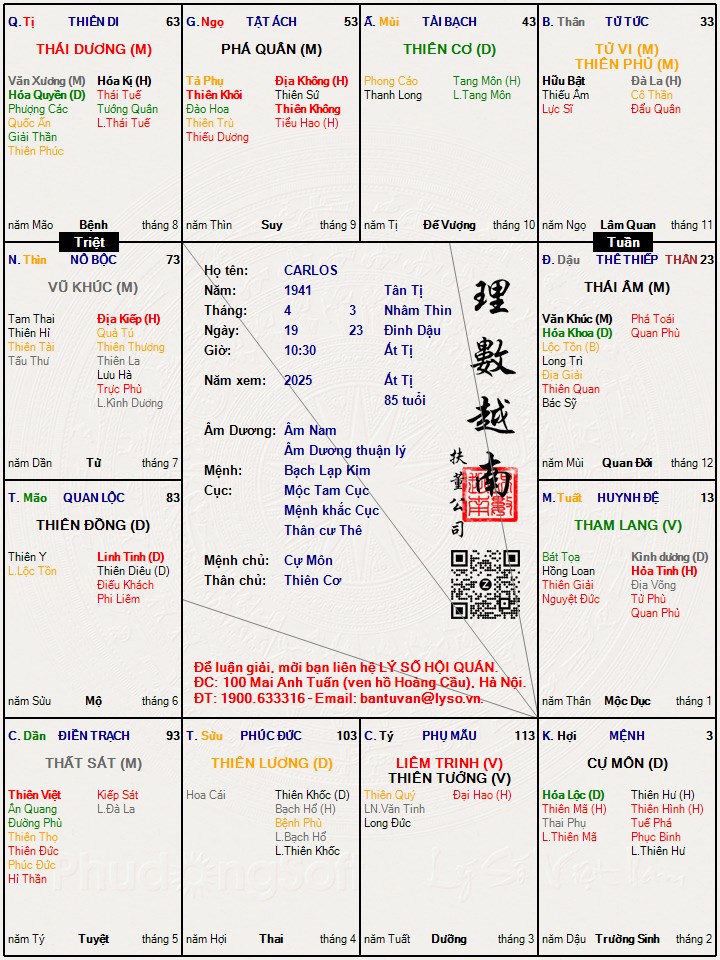 Q. Tị THIÊN DI 63
THÁI DƯƠNG (M)
Văn Xương (M) Hóa Kị (H)
Hóa Quyền (D) Thái Tuế
Phượng Các Tướng Quân
Quốc Ấn L.Thái Tuế
Giải Thần
Thiên Phúc
năm Mão Bệnh tháng 8
G. Ngọ TẬT ÁCH 53
PHÁ QUÂN (M)
Tả Phụ Địa Không (H)
Thiên Khôi Thiên Sứ
Đào Hoa Thiên Không
Thiên Trù Tiểu Hao (H)
Thiếu Dương
năm Thìn Suy tháng 9
Ấ. Mùi TÀI BẠCH 43
THIÊN CƠ (D)
Phong Cáo Tang Môn (H)
Thanh Long L.Tang Môn
năm Tị Đế Vượng tháng 10
B. Thân TỬ TỨC 33
TỬ VI (M)
THIÊN PHỦ (M)
Hữu Bật Đà La (H)
Thiếu Âm Cô Thần
Lực Sĩ Đẩu Quân
năm Ngọ Lâm Quan tháng 11
Triệt
Tuần
N. Thìn NÔ BỘC 73
VŨ KHÚC (M)
Tam Thai Địa Kiếp (H)
Thiên Hỉ Quả Tú
Thiên Tài Thiên Thương
Tấu Thư Thiên La
Lưu Hà
Trực Phù
L.Kình Dương
năm Dần Tử tháng 7
Họ tên: CARLOS
Năm: 1941 Tân Tị
Tháng: 4 3 Nhâm Thìn
Ngày: 19 23 Đinh Dậu
Giờ: 10:30 Ất Tị
Năm xem: 2025 Ất Tị
85 tuổi
Âm Dương: Âm Nam
Âm Dương thuận lý
Mệnh: Bạch Lạp Kim
Cục: Mộc Tam Cục
Mệnh khắc Cục
Thân cư Thê
Mệnh chủ: Cự Môn
Thân chủ: Thiên Cơ
理數越南
扶董公司
Để luận giải, mời bạn liên hệ LÝ SỐ HỘI QUÁN.
ĐC: 100 Mai Anh Tuấn (ven hồ Hoàng Cầu), Hà Nội.
ĐT: 1900.633316 - Email: bantuvan@lyso.vn.
Đ. Dậu THÊ THIẾP THÂN 23
THÁI ÂM (M)
Văn Khúc (M) Phá Toái
Hóa Khoa (D) Quan Phù
Lộc Tồn (B)
Long Trì
Địa Giải
Thiên Quan
Bác Sỹ
năm Mùi Quan Đới tháng 12
T. Mão QUAN LỘC 83
THIÊN ĐỒNG (D)
Thiên Y Linh Tinh (D)
L.Lộc Tồn Thiên Diêu (D)
Điếu Khách
Phi Liêm
năm Sửu Mộ tháng 6
M. Tuất HUYNH ĐỆ 13
THAM LANG (V)
Bát Tọa Kình dương (D)
Hồng Loan Hỏa Tinh (H)
Thiên Giải Địa Võng
Nguyệt Đức Tử Phù
Quan Phủ
năm Thân Mộc Dục tháng 1
C. Dần ĐIỀN TRẠCH 93
THẤT SÁT (M)
Thiên Việt Kiếp Sát
Ân Quang L.Đà La
Đường Phù
Thiên Thọ
Thiên Đức
Phúc Đức
Hỉ Thần
năm Tý Tuyệt tháng 5
T. Sửu PHÚC ĐỨC 103
THIÊN LƯƠNG (D)
Hoa Cái Thiên Khốc (D)
Bạch Hổ (H)
Bệnh Phù
L.Bạch Hổ
L.Thiên Khốc
năm Hợi Thai tháng 4
C. Tý PHỤ MẪU 113
LIÊM TRINH (V)
THIÊN TƯỚNG (V)
Thiên Quý Đại Hao (H)
LN.Văn Tinh
Long Đức
năm Tuất Dưỡng tháng 3
K. Hợi MỆNH 3
CỰ MÔN (D)
Hóa Lộc (D) Thiên Hư (H)
Thiên Mã (H) Thiên Hình (H)
Thai Phụ Tuế Phá
L.Thiên Mã Phục Binh
L.Thiên Hư
năm Dậu Trường Sinh tháng 2